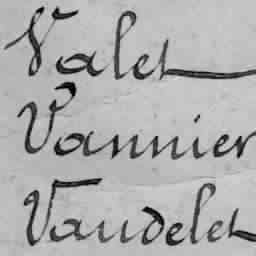 Valet
Vannier
Vaudelet